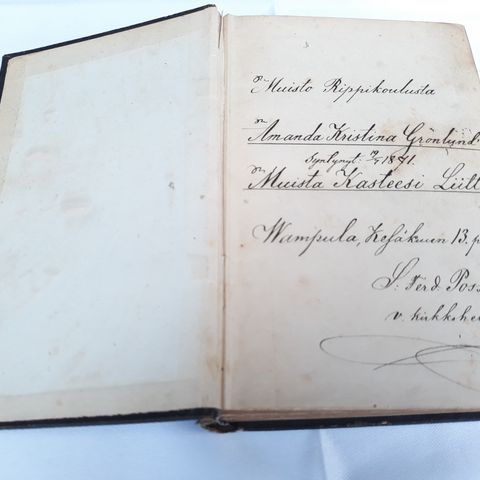 Muisto Rippikoulusta
Amanda Kristina Grönlund
Syntynyt 1871.
Muista Kasteesi Liitt
Wampula, Kesäkuen 13. p
S: Ferd. Poss
v. kirkkohe